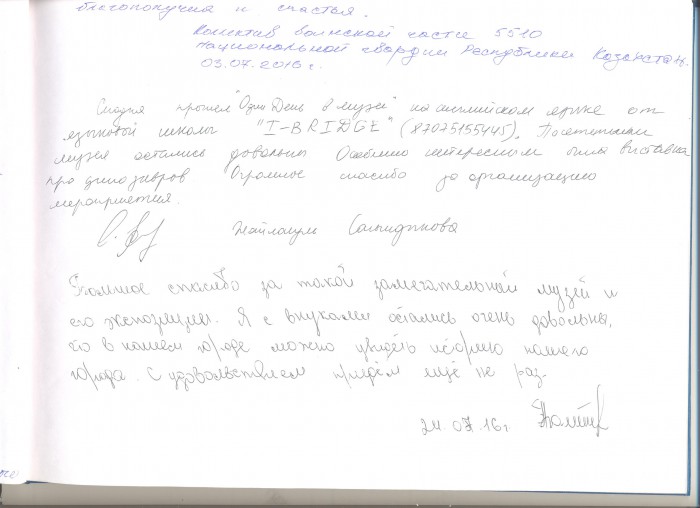 благополучия и счастья.
Коллектив воинской части 5510
Национальной гвардии Республики Казахстан.
03.07.2016 г.
Сегодня прошел "Один День в музее" на английском языке от
языковой школы "I-BRIDGE" (87075155445). Посетители
музея остались довольны Особенно интересным была выставка
про динозавров Огромное спасибо за организацию
мероприятия.
Огромное спасибо за такой замечательный музей и
его экспозиции. Я с внуками остались очень довольны,
что в нашем городе можно увидеть историю нашего
города. С удовольствием придём ещё не раз.
24.07.16г